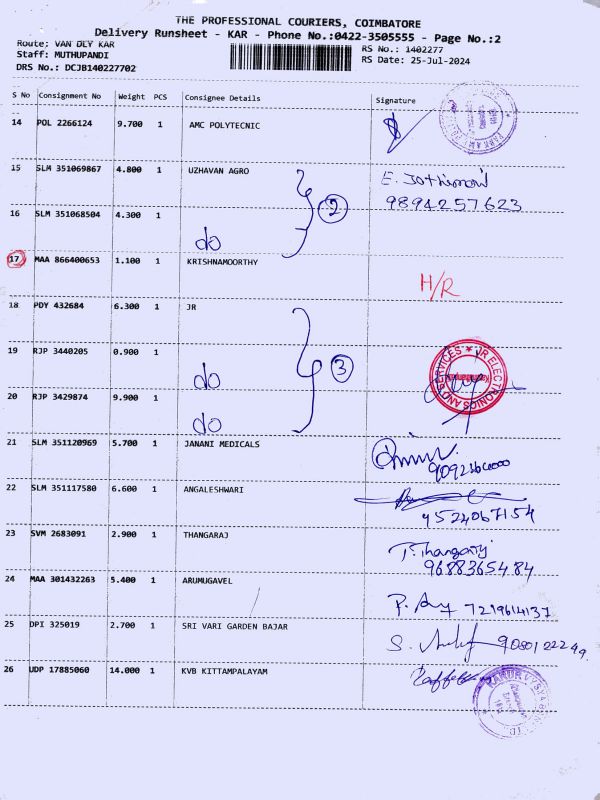 THE PROFESSIONAL COURIERS, COIMBATORE
Delivery Runsheet - KAR - Phone No.:0422-3505555 - Page No.:2
Route: VAN DLY KAR
RS No.: 1402277
Staff: MUTHUPANDI
RS Date: 25-Jul-2024
DRS No.: DCJB140227702
S No Consignment No Weight PCS Consignee Details Signature
14 POL 2266124 9.700 1 AMC POLYTECNIC
15 SLM 351069867 4.800 1 UZHAVAN AGRO E. Jothimani
2 9894257623
16 SLM 351068504 4.300 1
do
17 MAA 866400653 1.100 1 KRISHNAMOORTHY
H/R
18 PDY 432684 6.300 1 JR
19 RJP 3440205 0.900 1
do 3 JR ELECTRONICS AND SERVICES
20 RJP 3429874 9.900 1
do
21 SLM 351120969 5.700 1 JANANI MEDICALS
22 SLM 351117580 6.600 1 ANGALESHWARI
9524067154
23 SVM 2683091 2.900 1 THANGARAJ
T. Thangaraj
9688365484
24 MAA 301432263 5.400 1 ARUMUGAVEL
7219614137
25 DPI 325019 2.700 1 SRI VARI GARDEN BAJAR
S.
26 UDP 17885060 14.000 1 KVB KITTAMPALAYAM